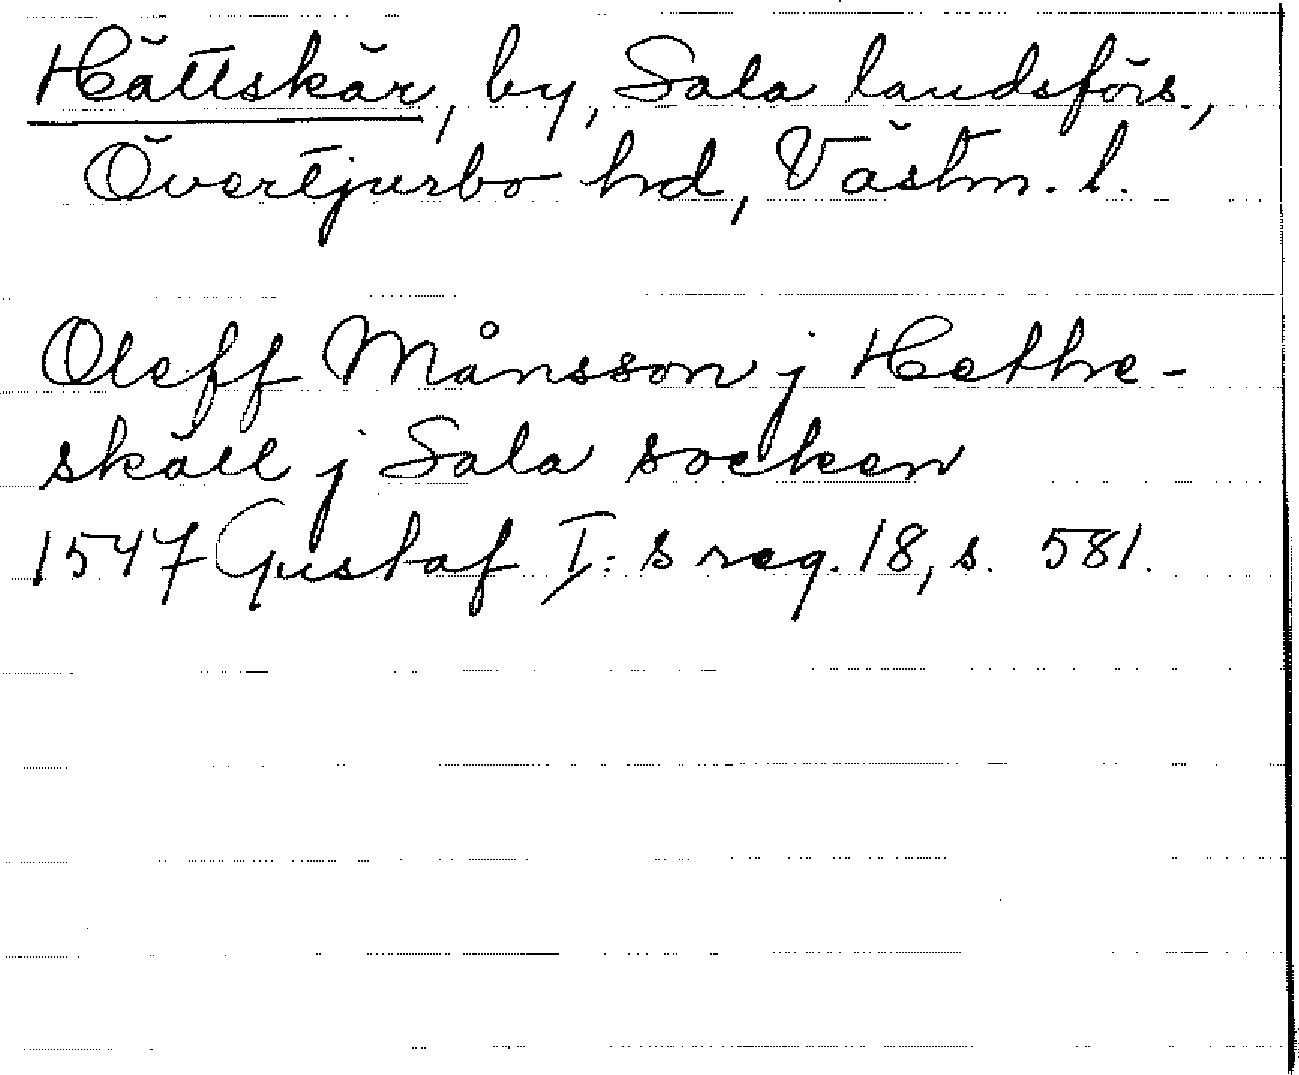 Hättskär, by, Sala landsförs.,
Övertjurbo hd, Västm. l.
Oleff Månsson j Hethe-
skäll j Sala socken
1547 Gustaf I:s reg. 18, s. 581.